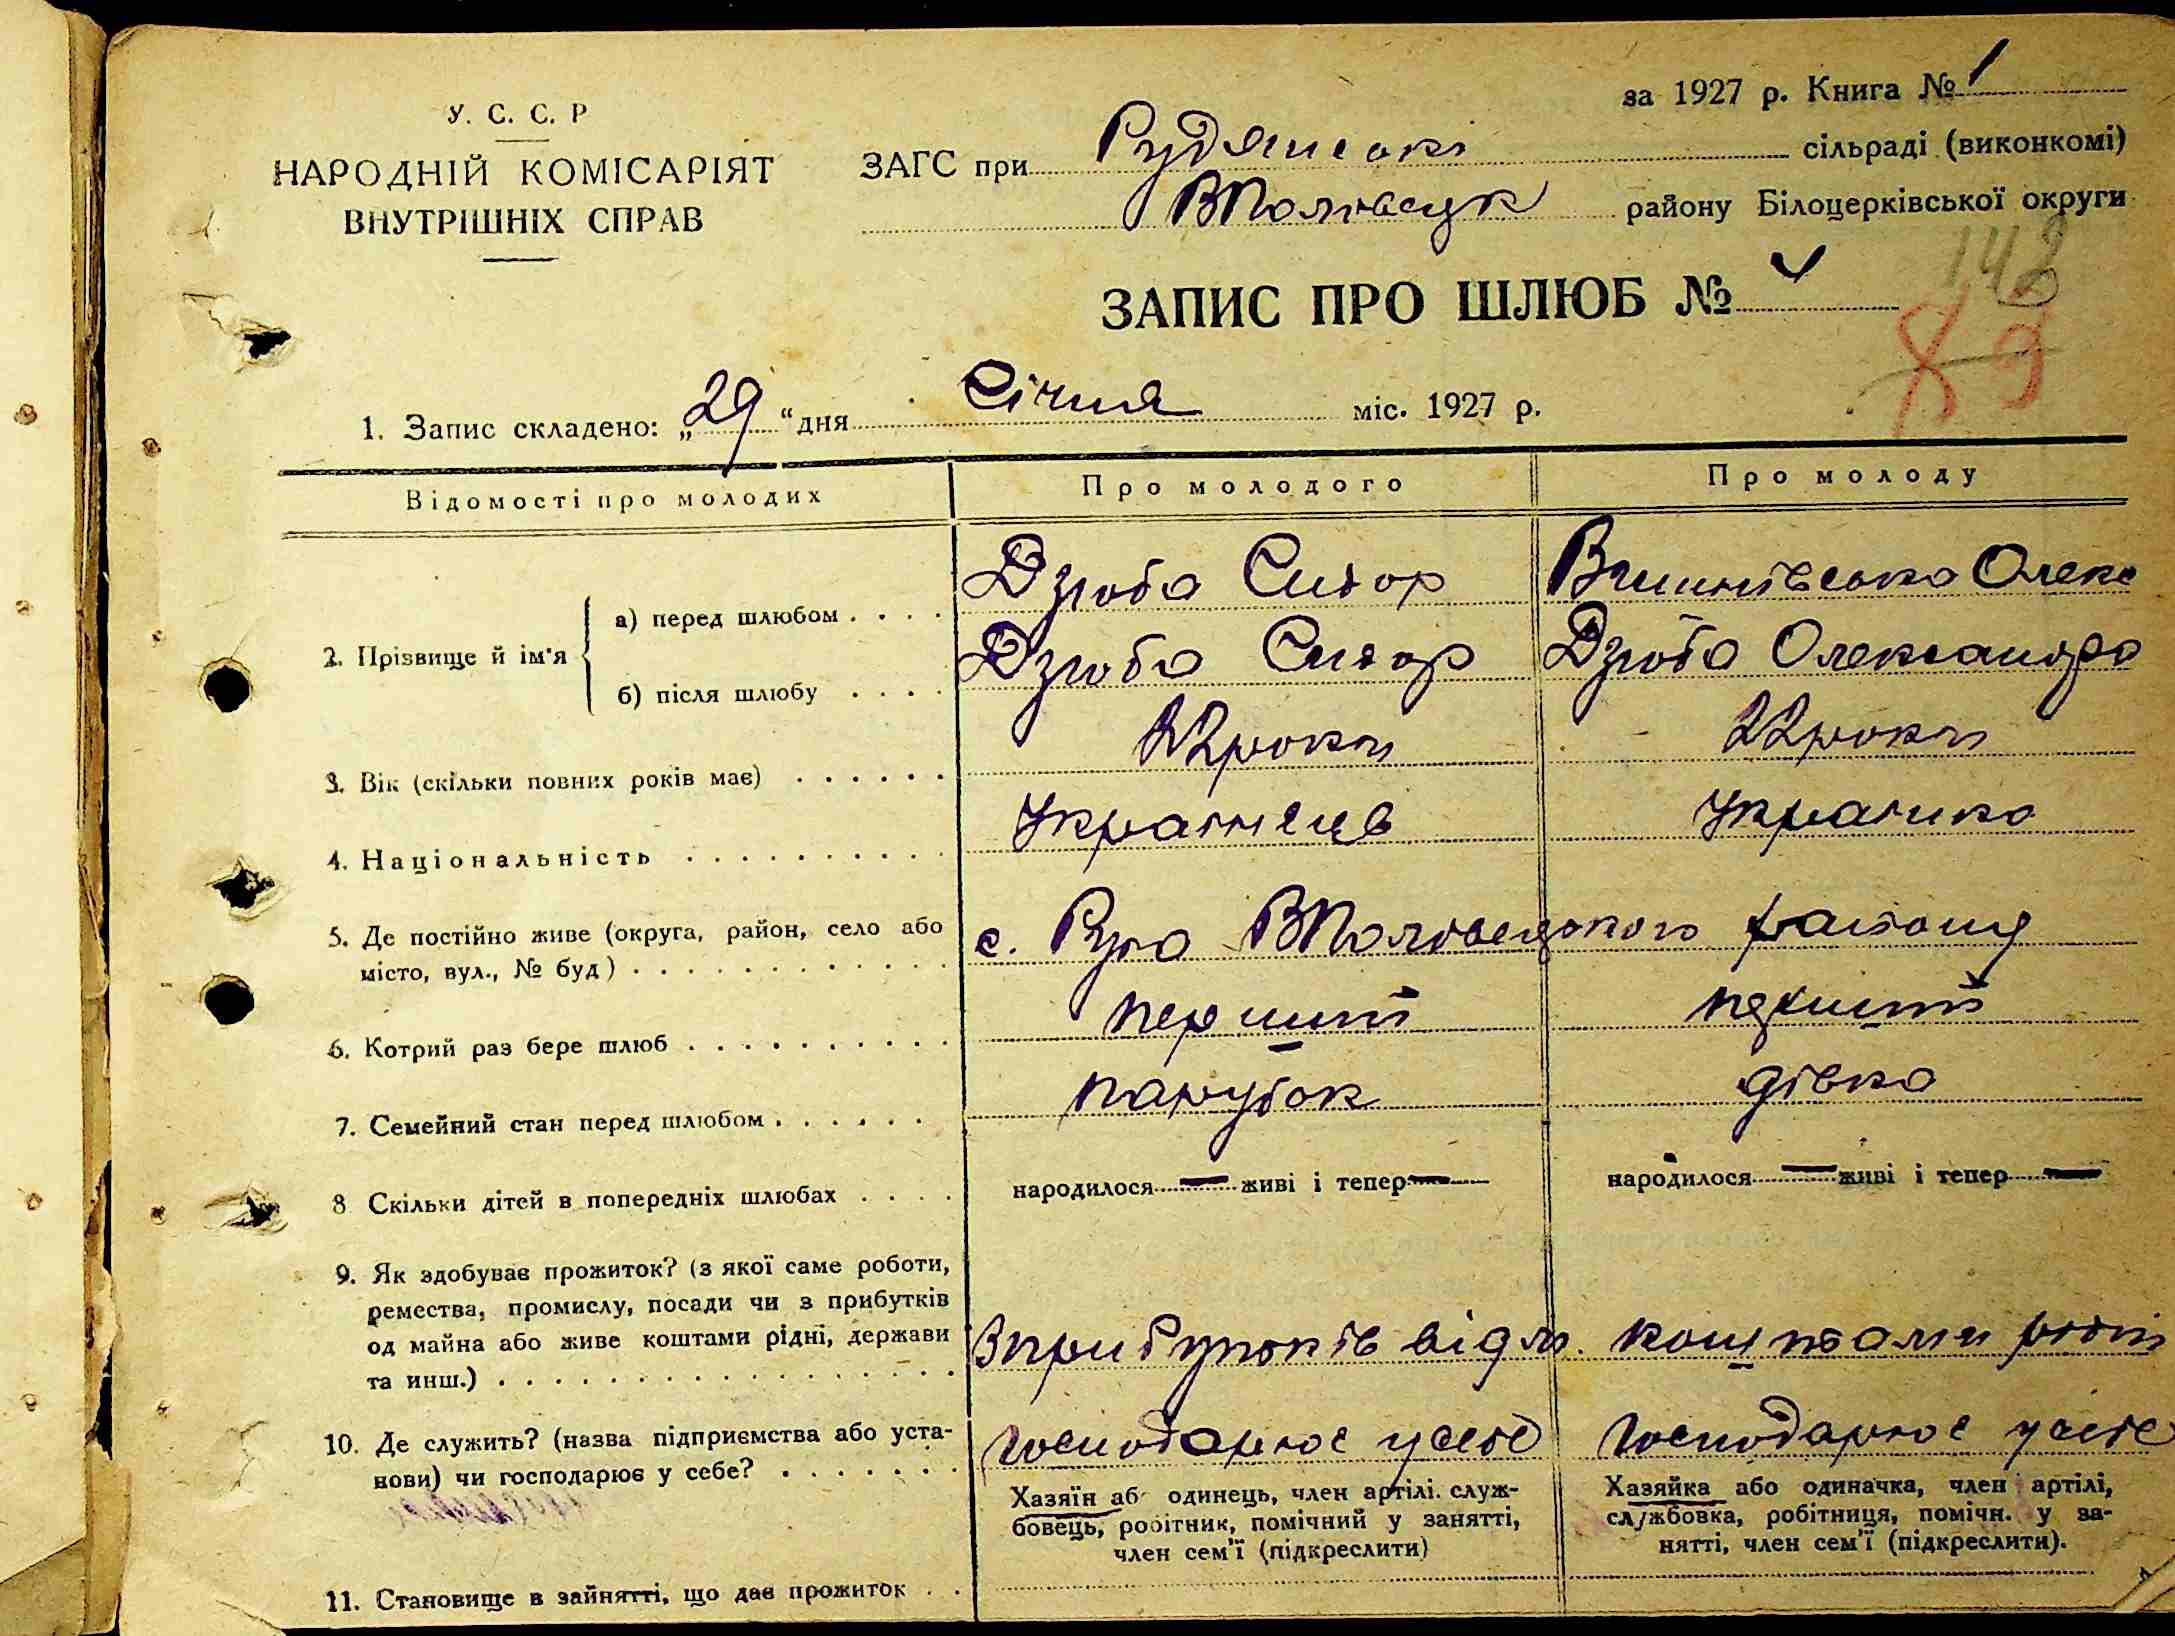 за 1927 р. Книга № 1
У. С. С. Р
НАРОДНІЙ КОМІСАРІЯТ
ВНУТРІШНІХ СПРАВ
ЗАГС при Рудянські сільраді (виконкомі)
ВПоловецк району Білоцерківської округи
148
ЗАПИС ПРО ШЛЮБ № 4
89
1. Запис складено: „29“ дня Січня міс. 1927 р.
Відомості про молодих
Про молодого
Про молоду
2. Прізвище й ім'я
а) перед шлюбом
Дзюба Сидор
Вишнівська Олекс
б) після шлюбу
Дзюба Сидор
Дзюба Олександра
3. Вік (скільки повних років має)
22 роки
22 роки
4. Національність
Українець
Українка
5. Де постійно живе (округа, район, село або
місто, вул., № буд)
с. Руда ВПоловецького району
6. Котрий раз бере шлюб
перший
перший
7. Семейний стан перед шлюбом
парубок
дівка
8 Скільки дітей в попередніх шлюбах
народилося — живі і тепер —
народилося — живі і тепер —
9. Як здобуває прожиток? (з якої саме роботи,
ремества, промислу, посади чи з прибутків
од майна або живе коштами рідні, держави
та инш.)
З прибутків від м. коштами рідні
10. Де служить? (назва підприємства або уста-
нови) чи господарює у себе?
господарює у себе
господарює у себе
Хазяїн або одинець, член артілі, служ-
бовець, робітник, помічний у занятті,
член сем'ї (підкреслити)
Хазяйка або одиначка, член артілі,
службовка, робітниця, помічн. у за-
нятті, член сем'ї (підкреслити).
11. Становище в зайнятті, що дає прожиток